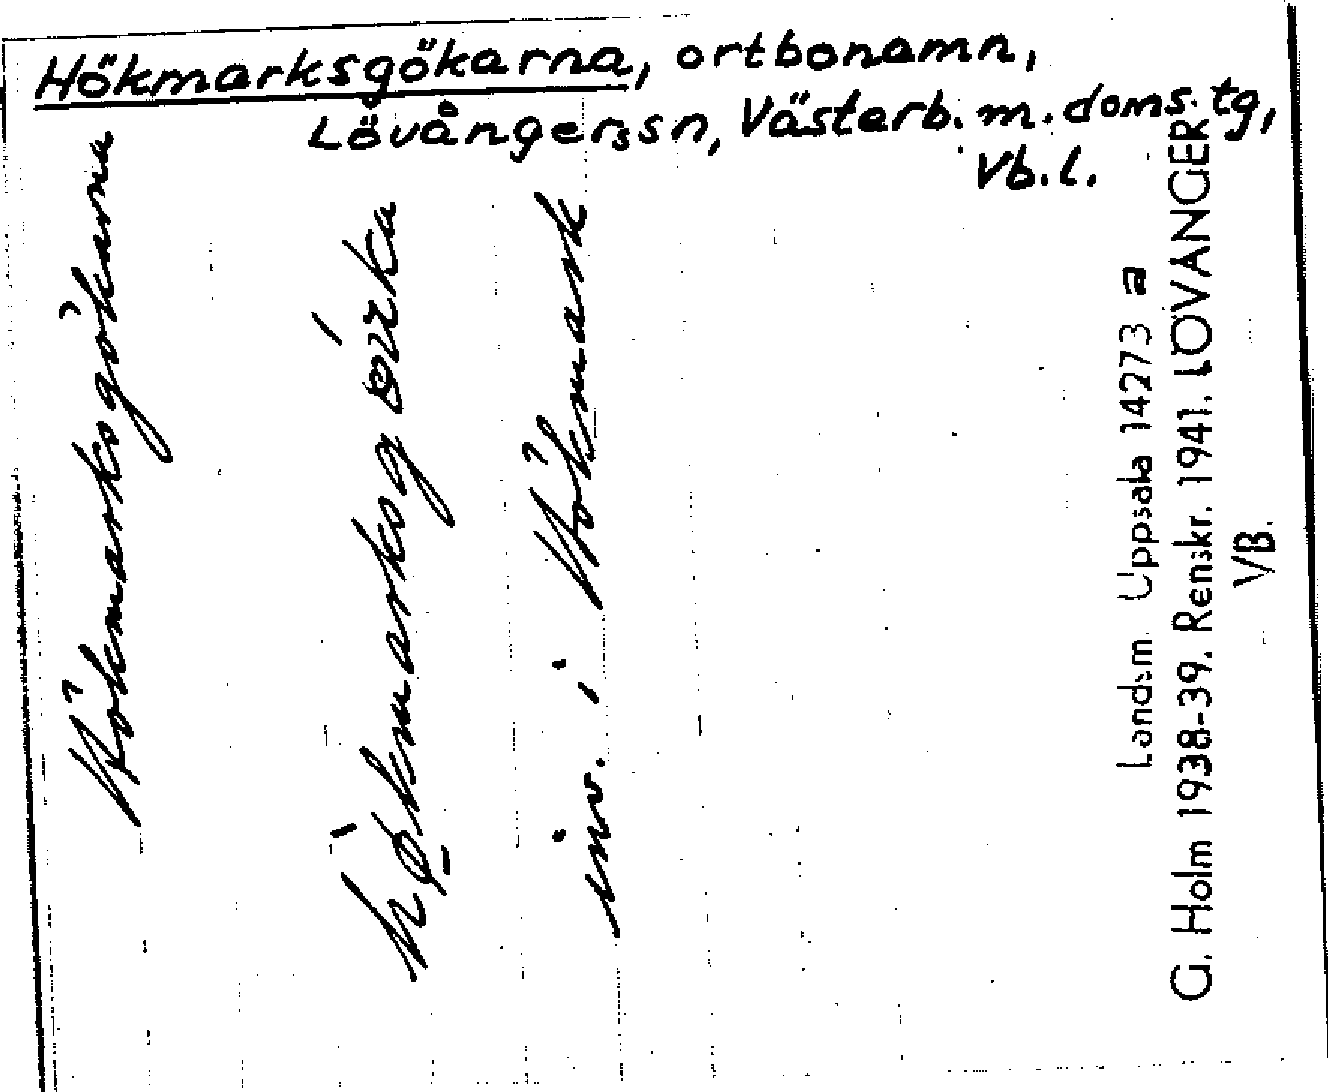 Hökmarksgökarna, ortbonamn,
Lövångerssn, Västerb. m. doms. tg,
Vb. l.
Hökmarksgökarna
inv. i Hökmark
Landsm. Uppsala 14273 a
G. Holm 1938-39. Renskr. 1941. LÖVÅNGER.
VB.